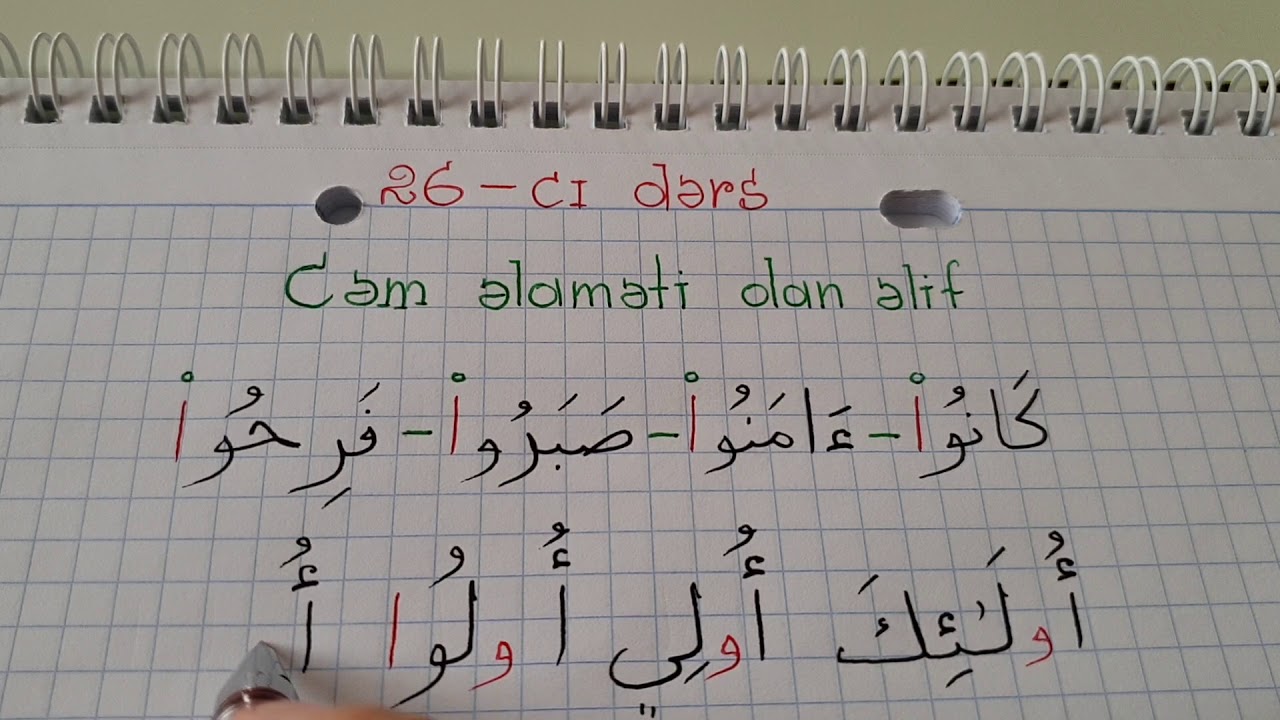 26-cı dərs
Cəm əlaməti olan əlif
كَانُوا۟ - ءَامَنُوا۟ - صَبَرُوا۟ - فَرِحُوا۟
أُولَٰئِكَ أُولِي أُولُوا أُ